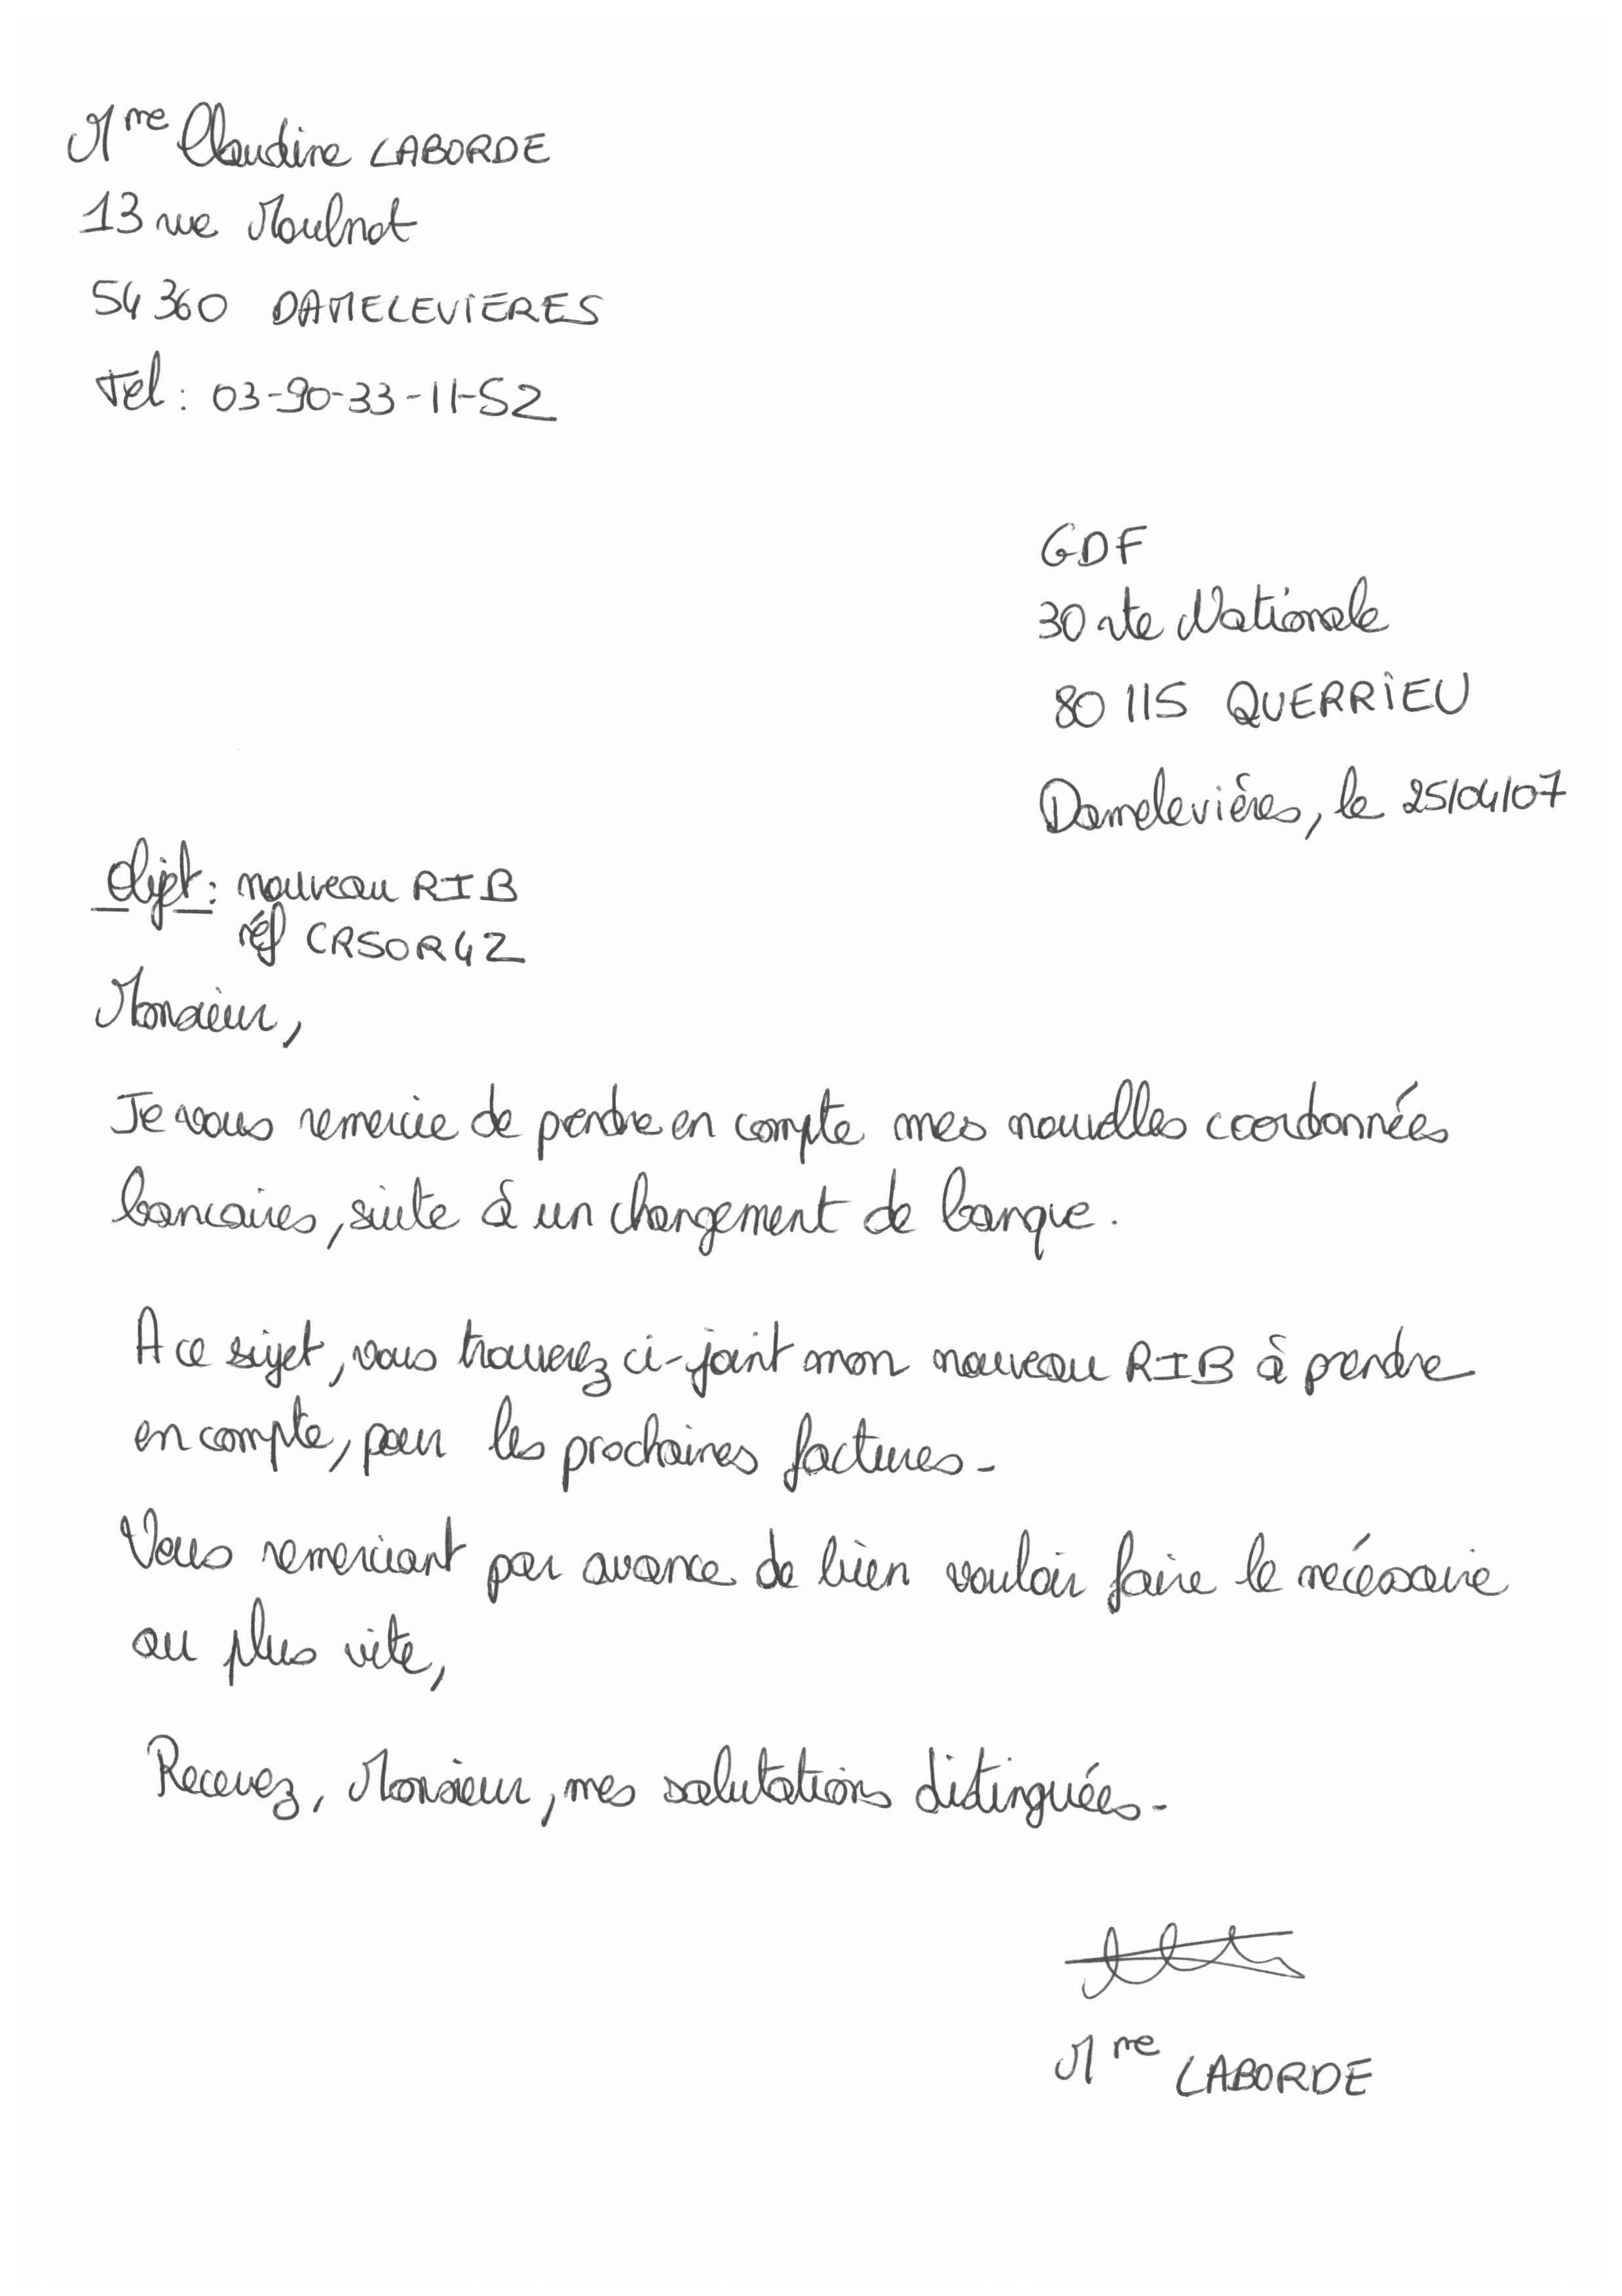 Mme Claudine LABORDE
13 rue Moulnot
54 360 DAMELEVIERES
Tel : 03-90-33-11-52
GDF
30 rte Nationale
80 115 QUERRIEU
Damelevières, le 25/04/07
Objet : nouveau RIB
réf CRSOR42
Monsieur,
Je vous remercie de prendre en compte mes nouvelles coordonnées
bancaires, suite à un changement de banque.
A ce sujet, vous trouverez ci-joint mon nouveau RIB à prendre
en compte, pour les prochaines factures-
Vous remerciant par avance de bien vouloir faire le nécessaire
au plus vite,
Recevez, Monsieur, mes salutations distinguées-
Mme LABORDE